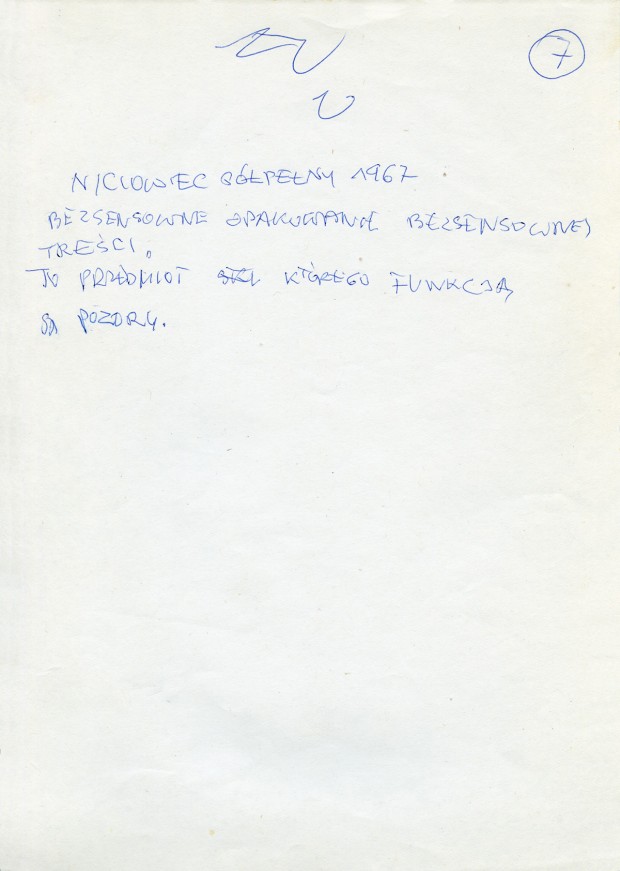 7
NICIOWIEC PÓŁPEŁNY 1967
BEZSENSOWNE OPAKOWANIE BEZSENSOWNEJ
TREŚCI.
TO PRZEDMIOT KTÓREGO FUNKCJĄ
SĄ POZORY.